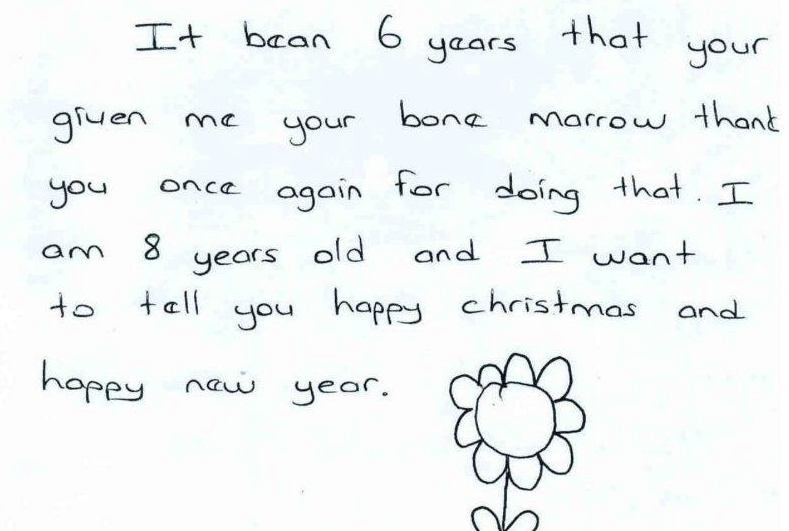 It bean 6 years that your
given me your bone marrow thank
you once again for doing that. I
am 8 years old and I want
to tell you happy christmas and
happy new year.